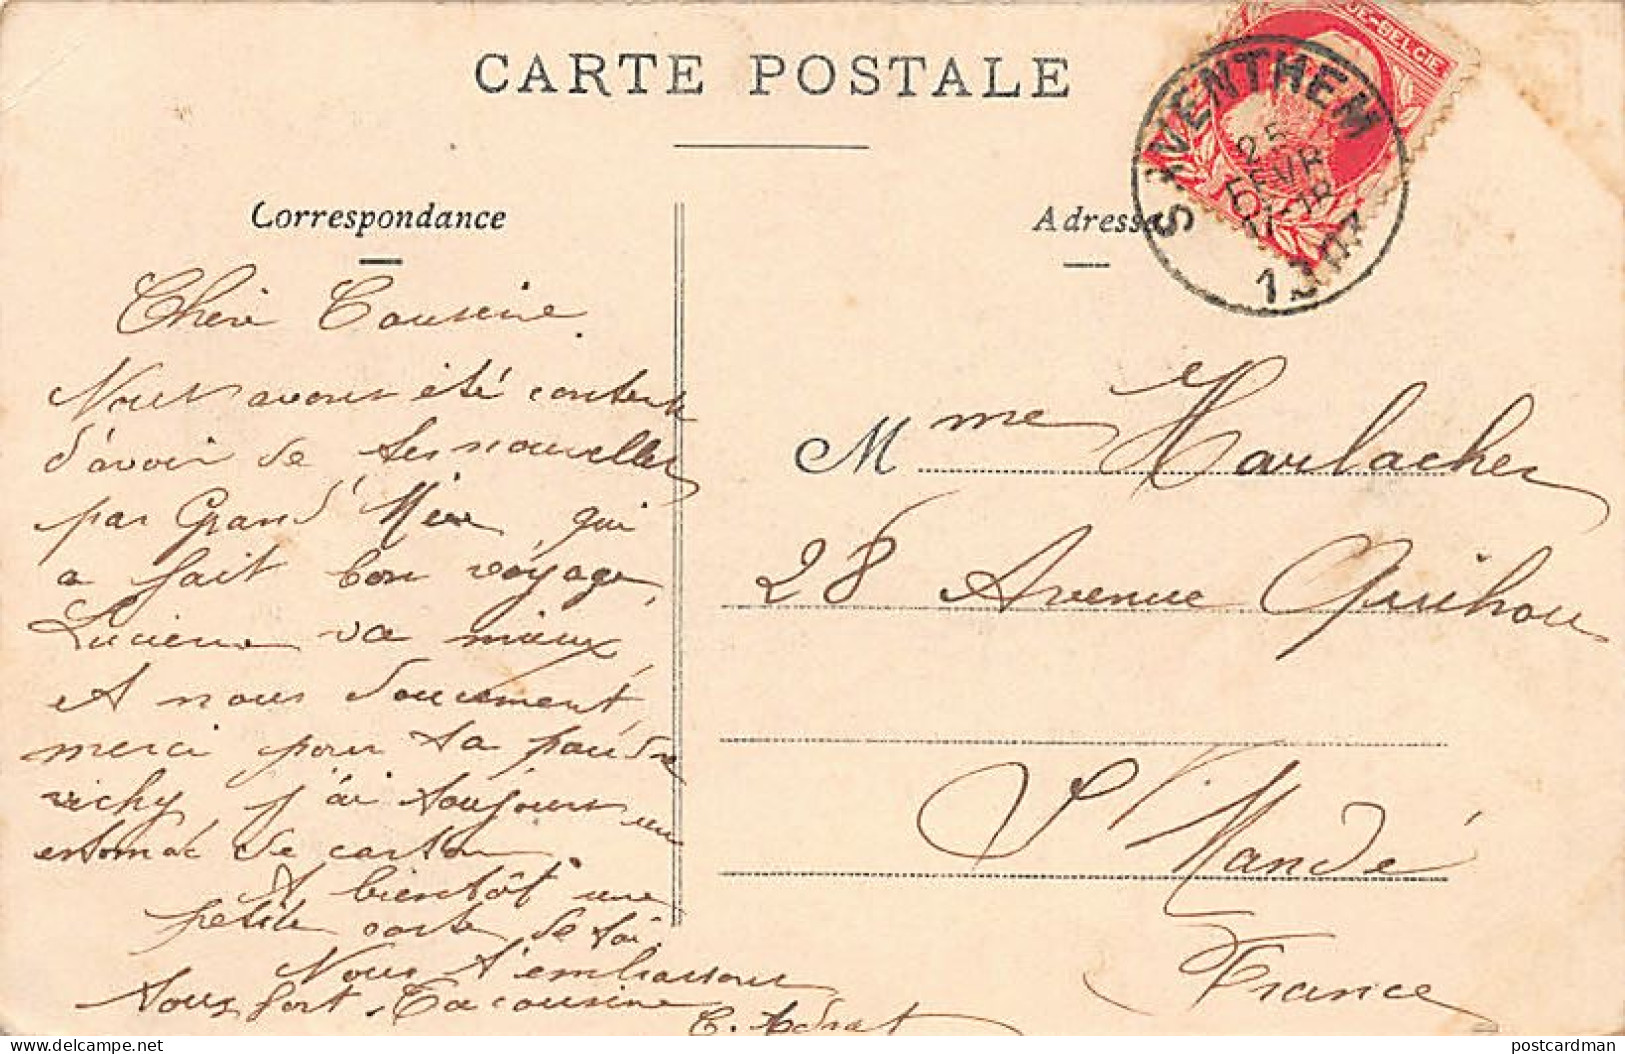 CARTE POSTALE
QUE-BELGIE
SAVENTHEM
25
FEVR
17-18
1907
Correspondance
Adresse
Chère Cousine
Nous avons été contents
d'avoir de tes nouvelles
par Grand' Mère qui
a fait bon voyage,
Lucienne va mieux,
et nous doucement,
merci pour ta poudre
vichy j'ai toujours un
estomac de carton
A bientôt une
petite carte de toi.
Nous t'embrassons
tous fort. Ta cousine
Mme Harlacher
28 Avenue Quihou
St Mandé
France
postcardman